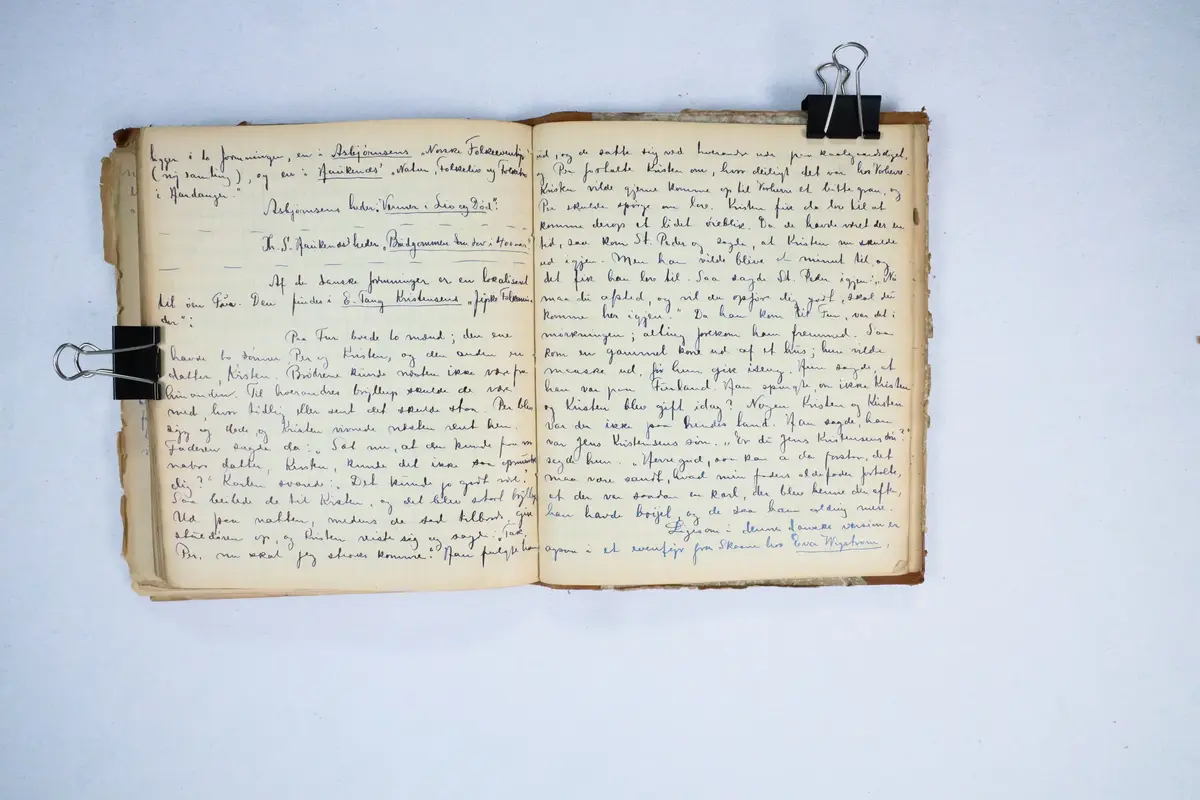 ligger i to formninger, en i Asbjörnsens "Norske Folkeeventyr"
(ny samling), og en i Haukenæs' "Natur, Folkeliv og Folketro
i Hardanger."
Asbjörnsens heder: "Venner i Liv og Död":
Th. S. Haukenæs' heder "Brudgommen som sov i 400 aar"
Af de danske formninger er en lokaliseret
til öen Fuur. Den findes i E. Tang Kristensens "Jyske Folkemin-
der":
Paa Fur boede to mænd; den ene
havde to sönner Per og Kristen, og den anden en
datter, Kirsten. Brödrene kunde næsten ikke være fra
hinanden. Til hverandres bryllup skulde de være
med, hvor tidlig eller sent det skulde staa. Per blev
syg og døde og Kristen vinede næsten væk hen.
Faderen sagde da: "Sæt nu, at du kunde faa vor
nabos datter, Kirsten, kunde det ikke opmuntre
dig?" Karlen svarede: "Det kunde jo godt være."
Saa beilede de til Kirsten, og det blev stort bryllup.
Ud paa natten, medens de sad tilbords, gik
stuedören op, og Kristen reiste sig og sagde: "Tak,
Per, nu skal jeg straks komme." Han fulgte ham
ud, og de satte sig ved hverandre ude paa kaalgaardsdiget,
og Per fortalte Kristen om, hvor deiligt det var hos Vorherre.
Kristen vilde gjerne komme op til Vorherre et bitte gran, og
Per skulde spörge om lov. Kristen fik da lov til at
komme derop et lidet öieblik. Da de havde været der en
tid, saa kom St. Peder og sagde, at Kristen nu skulde
ud igjen. Men han vilde blive et minut til, og
det fik han lov til. Saa sagde St. Peder igjen: "Nu
maa du afsted, og vil du opföre dig godt, skal du
komme her igjen." Da han kom til Fur, var det i
mörkningen; alting forekom ham fremmed. Saa
kom en gammel kone ud af et hus; hun vilde
menske ud, för hun gik iseng. Han sagde, at
han var paa Fuurland. Han spurgte, om ikke Kristen
og Kirsten blev gift idag? Nogen Kristen og Kirsten
var der ikke paa hendes land. Han sagde, han
var Jens Kristensens sön. "Er du Jens Kristensens sön?"
sagde hun. "Herregud, saa kan a da forstaa, det
maa være sandt, hvad min faders oldefader fortalte,
at der var saadan en karl, der blev henne den aften,
han havde bröjel, og de saa ham aldrig mere.
Ligesom i denne danske version er
ogsaa i et eventyr fra Skaane hos Eva Wigström,